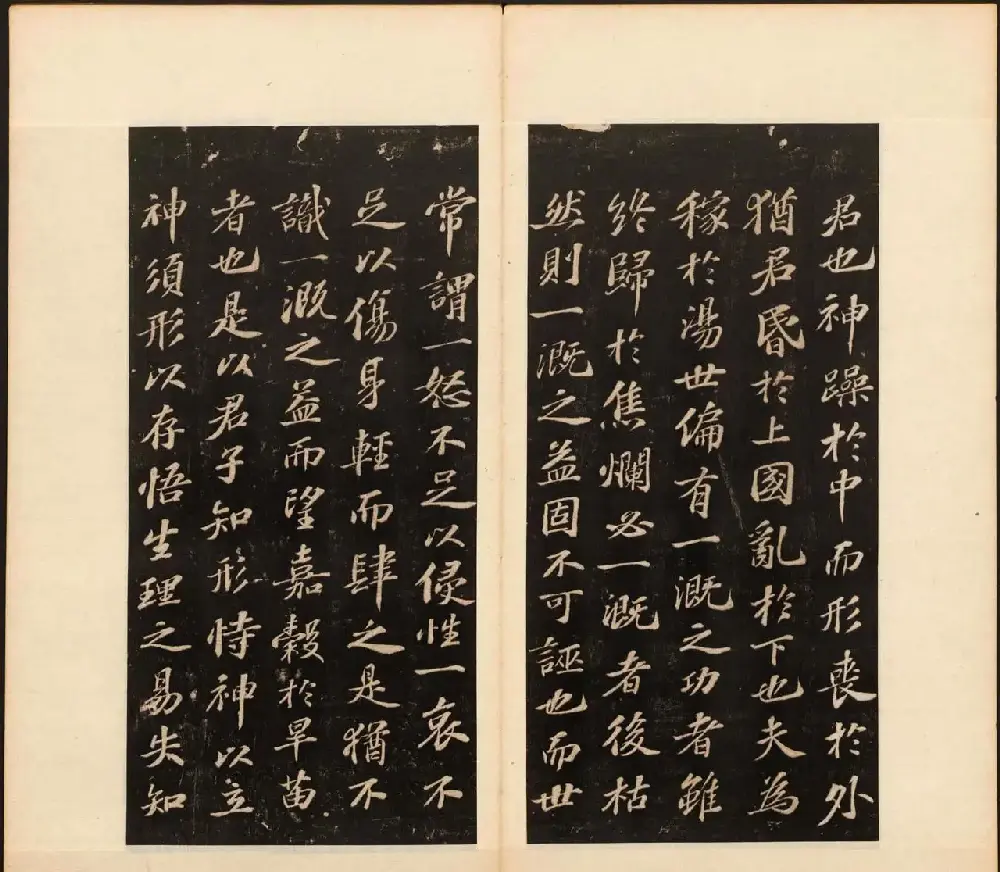 君也神躁於中而形喪於外
猶君昏於上國亂於下也夫為
稼於湯世偏有一溉之功者雖
終歸於焦爛必一溉者後枯
然則一溉之益固不可誣也而世
常謂一怒不足以侵性一哀不
足以傷身輕而肆之是猶不
識一溉之益而望嘉穀於旱苗
者也是以君子知形恃神以立
神須形以存悟生理之易失知